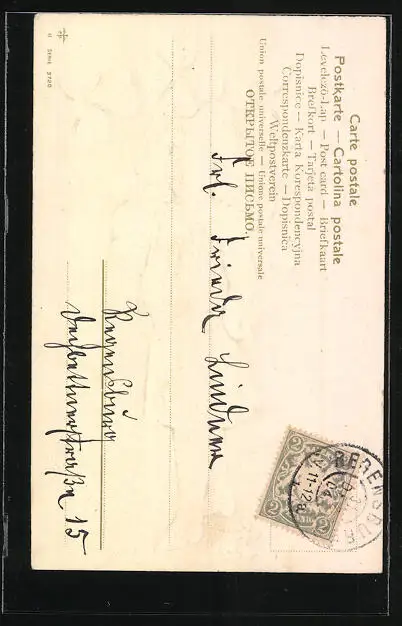 Carte postale
Postkarte — Cartolina postale
Levelező-Lap — Post card — Briefkaart
Brefkort — Tarjeta postal
Dopisnice — Karta Korespondencyjna
Correspondenzkarte — Dopisnica
Weltpostverein
Union postale universelle — Unione postale universale
ОТКРЫТОЕ ПИСЬМО.
Frl. Frieda Lindner
Regensburg
straße 15
REGENSBURG
11-12
2 2
SERIE